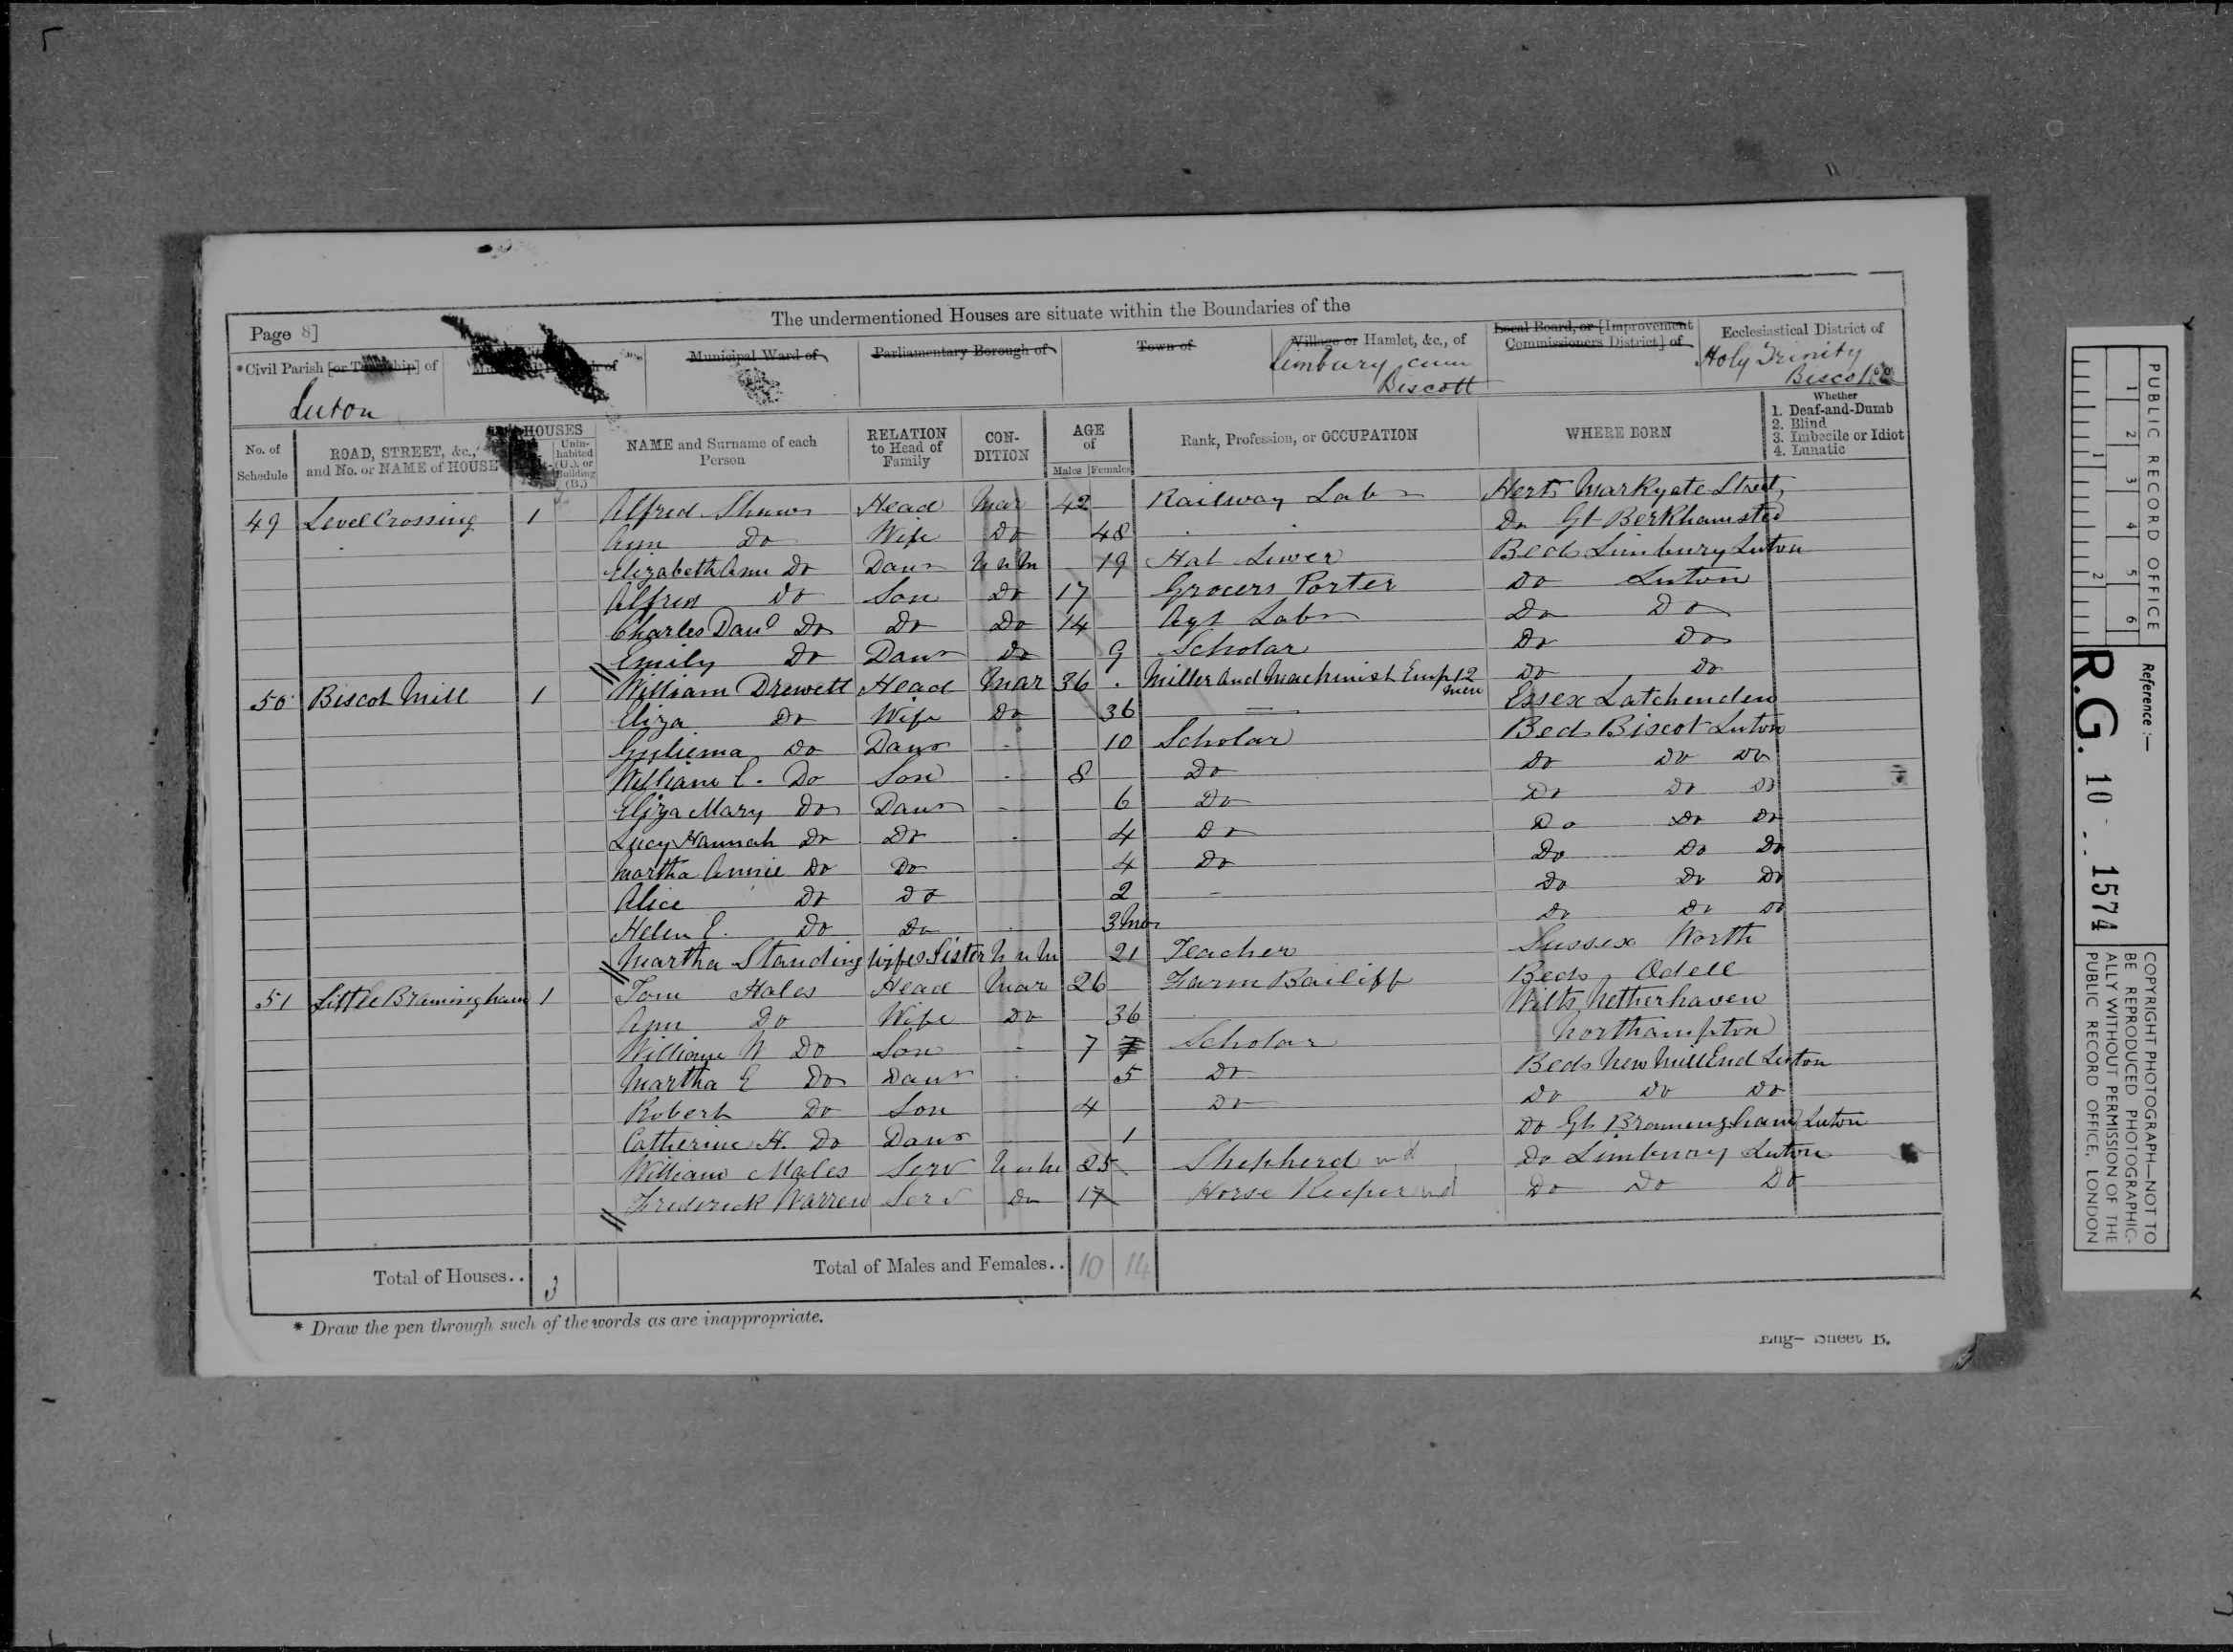 The undermentioned Houses are situate within the Boundaries of the
Page 8]
*Civil Parish [or Township] of
Luton
Municipal Ward of
Parliamentary Borough of
Town of
Village or Hamlet, &c., of
Limbury cum
Biscott
Local Board, or [Improvement
Commissioners District] of
Ecclesiastical District of
Holy Trinity
Biscot
No. of Schedule ROAD, STREET, &c., and No. or NAME of HOUSE HOUSES Uninhabited (U.), or Building (B.) NAME and Surname of each Person RELATION to Head of Family CONDITION AGE of Males Females Rank, Profession, or OCCUPATION WHERE BORN Whether 1. Deaf-and-Dumb 2. Blind 3. Imbecile or Idiot 4. Lunatic
49 Level Crossing 1 Alfred Head Mar 42 Railway Labr Herts Markyate Street
Ann Do Wife Do 48 Do Gt Berkhamsted
Elizabeth Ann Do Daur UnM 19 Hat Sewer Beds Limbury Luton
Alfred Do Son Do 17 Grocers Porter Do Luton
Charles Danl Do Do Do 14 Agl Labr Do Do
Emily Do Daur Do 9 Scholar Do Do
50 Biscot Mill 1 William Drewett Head Mar 36 Miller and Machinist Emp 12 men Do Do
Eliza Do Wife Do 36 Essex Latchenden
Guliema Do Daur 10 Scholar Beds Biscot Luton
William E. Do Son 8 Do Do Do Do
Eliza Mary Do Daur 6 Do Do Do Do
Lucy Hannah Do Do 4 Do Do Do Do
Martha Annie Do Do 4 Do Do Do Do
Alice Do Do 2 - Do Do Do
Helen E. Do Do 3 Mo Do Do Do
Martha Standing Wifes Sister UnM 21 Teacher Sussex Worth
51 Little Bramingham 1 Tom Hales Head Mar 26 Farm Bailiff Beds Odell
Ann Do Wife Do 36 Wilts Netherhaven
William W Do Son 7 Scholar Northampton
Martha E Do Daur 5 Do Beds New Mill End Luton
Robert Do Son 4 Do Do Do Do
Catherine H. Do Daur 1 Do Gt Bramingham Luton
William Males Serv UnM 25 Shepherd Do Limbury Luton
Frederick Warren Serv Do 17 Horse Keeper Do Do Do
Total of Houses.. 3 Total of Males and Females.. 10 14
* Draw the pen through such of the words as are inappropriate.
Eng- Sheet B.
PUBLIC RECORD OFFICE
1 2 3 4 5 6
1 2
Reference :-
R.G. 10 .. 1574
COPYRIGHT PHOTOGRAPH—NOT TO
BE REPRODUCED PHOTOGRAPHIC-
ALLY WITHOUT PERMISSION OF THE
PUBLIC RECORD OFFICE, LONDON